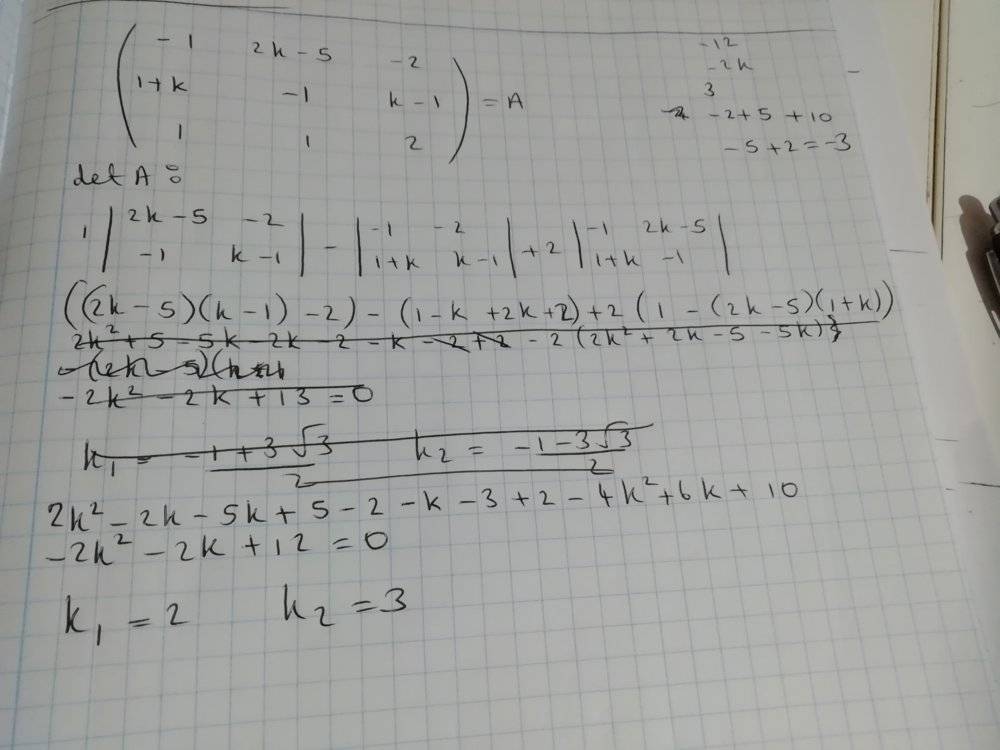 -1 2k-5 -2
1+k -1 k-1 = A
1 1 2
-12
-2k
3
-2+5 +10
-5+2=-3
det A:
1 | 2k-5 -2 | - | -1 -2 | +2 | -1 2k-5 |
| -1 k-1 | | 1+k k-1 | | 1+k -1 |
((2k-5)(k-1)-2) - (1-k+2k+2)+2(1-(2k-5)(1+k))
2k²+5-5k-2k-2-k-2+2-2(2k²+2k-5-5k)}
-2k²-2k+13=0
k₁ = -1+3√3/2 k₂ = -1-3√3/2
2k²-2k-5k+5-2-k-3+2-4k²+6k+10
-2k²-2k+12=0
k₁=2 k₂=3